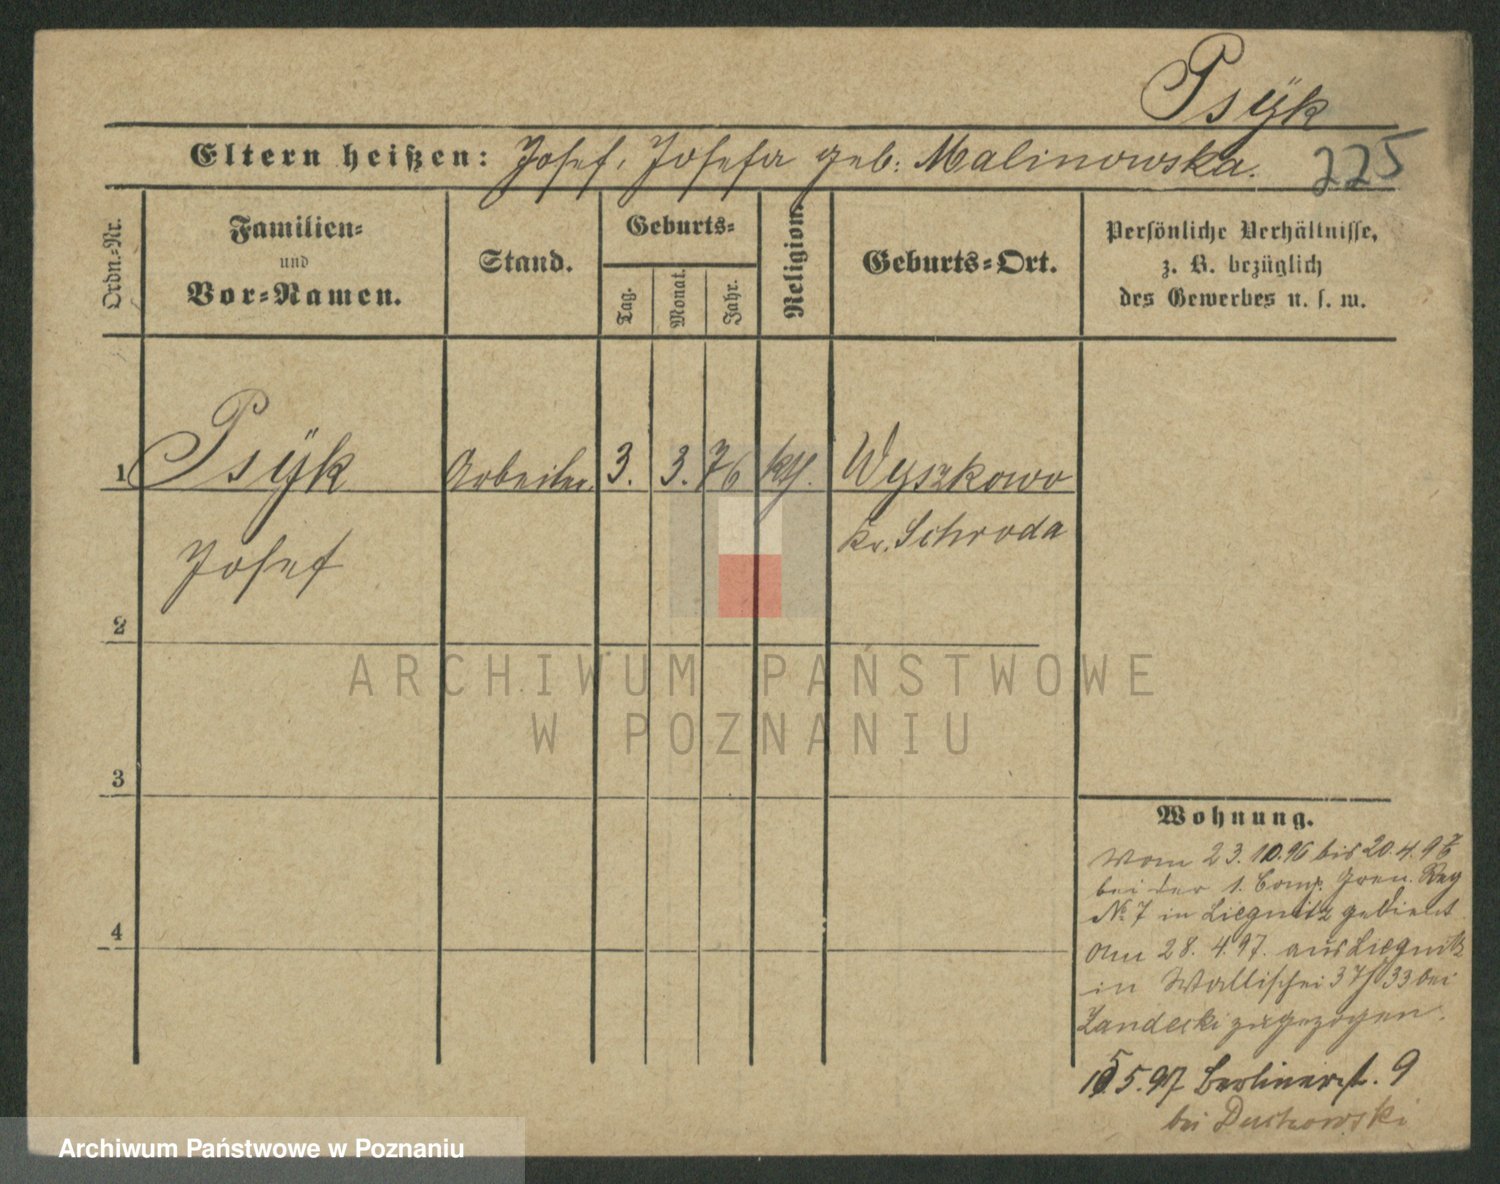 Psÿk
Eltern heißen: Josef, Josefa geb. Malinowska.
225
Ordn.-Nr.
Familien-
und
Vor-Namen.
Stand.
Geburts-
Tag.
Monat.
Jahr.
Religion.
Geburts-Ort.
Persönliche Verhältnisse,
z. B. bezüglich
des Gewerbes u. s. w.
1 Psÿk Arbeiter 3. 3. 76 kth. Wyszkowo
Josef Kr. Schroda
2
3
4
ARCHIWUM PAŃSTWOWE
W POZNANIU
Wohnung.
Vom 23.10.96 bis 20.4.97
bei der 1. Comp. Gren. Reg
No 7 in Liegnitz gedient
Am 28.4.97. aus Liegnitz
in Wallischei 37/33 bei
Landecki zugezogen.
5.97 Berlinerst. 9
bei
Archiwum Państwowe w Poznaniu